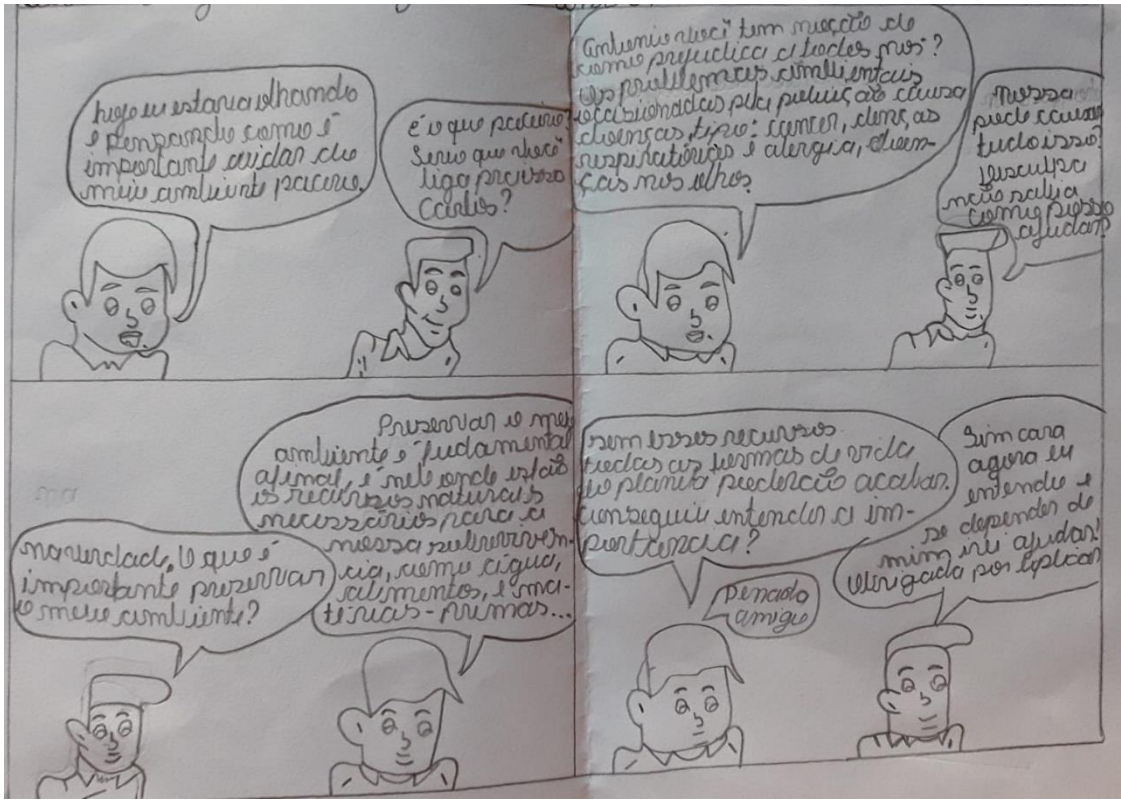 hoje eu estava olhando
e pensando como é
importante cuidar do
meio ambiente parceiro.
é o que parceiro?
Serio que você
liga pra isso
Carlos?
Antonio você tem noção de
como prejudica a todos nós?
os problemas ambientais
ocasionadas pela poluição causa
doenças, tipo: cancer, doenças
respiratórias e alergia, doen-
ças nos olhos.
Nossa
pode causar
tudo isso?
desculpa
não sabia
como posso
ajudar?
na verdade, o que é
importante prezervar
o meio ambiente?
Preservar o meio
ambiente é fudamental
afinal, é nele onde estão
os recursos naturais
necessários para a
nossa sobrevivên-
cia, como água,
alimentos, e ma-
térias-primas...
sem esses recursos
todas as formas de vida
do planeta poderão acabar.
conseguiu entender a im-
portancia?
De nada
amigo
Sim cara
agora eu
entendo e
se depender de
mim irei ajudar!
obrigada por explicar